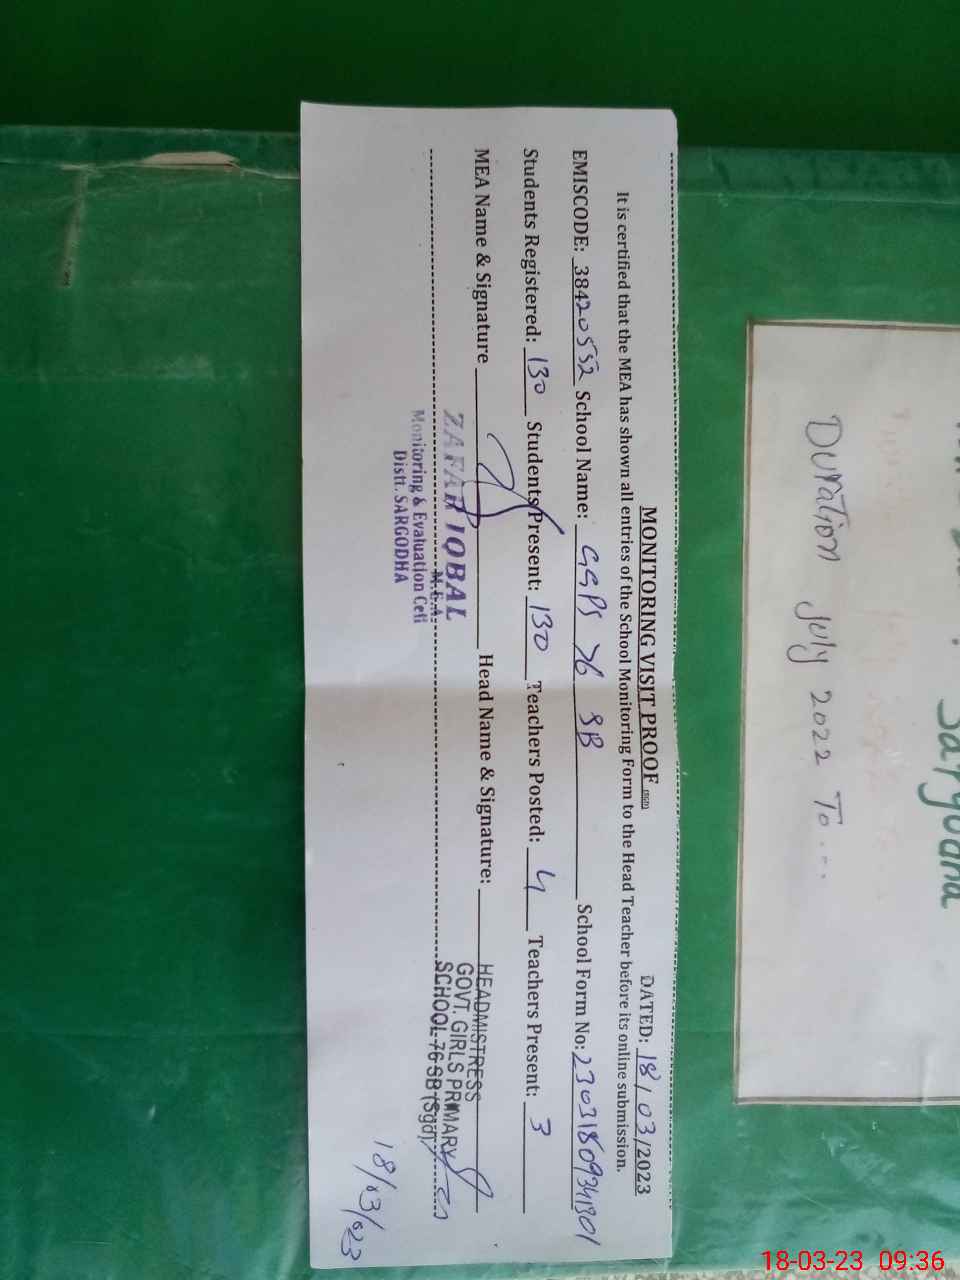 MONITORING VISIT PROOF (SGD) DATED: 18/03/2023
It is certified that the MEA has shown all entries of the School Monitoring Form to the Head Teacher before its online submission.
EMISCODE: 38420552 School Name: GGPS 76 SB School Form No: 23031809341301
Students Registered: 130 Students Present: 130 Teachers Posted: 4 Teachers Present: 3
MEA Name & Signature Head Name & Signature:
ZAFAR IQBAL
M.E.A.
Monitoring & Evaluation Cell
Distt. SARGODHA
HEADMISTRESS
GOVT. GIRLS PRIMARY
SCHOOL-76-SB (Sgd)
18/03/023
Sargodha
Duration July 2022 To...
18-03-23 09:36